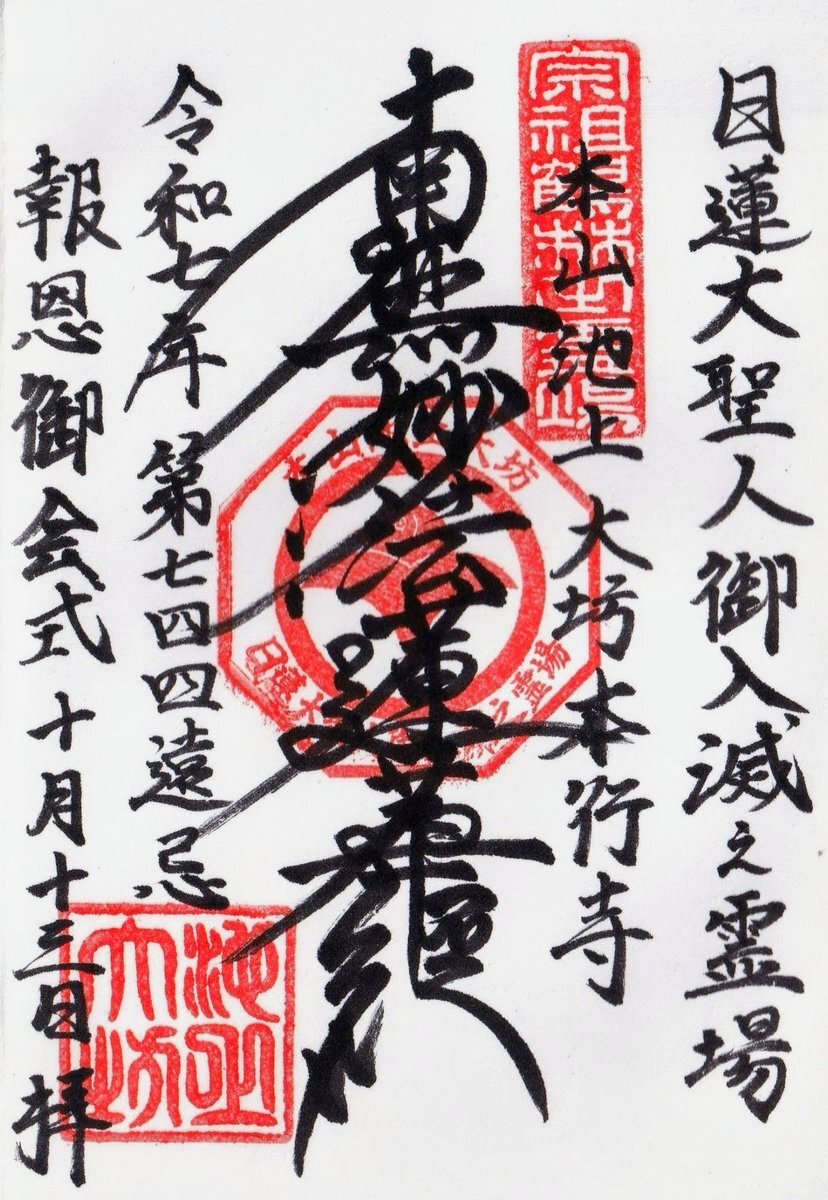 日蓮大聖人御入滅之霊場
本山池上大坊本行寺
南無妙法蓮華経
令和七年 第七四四遠忌
報恩御会式 十月十三日 拝
宗祖鶴林之霊場
大坊
日蓮大
之霊場
池上
大坊